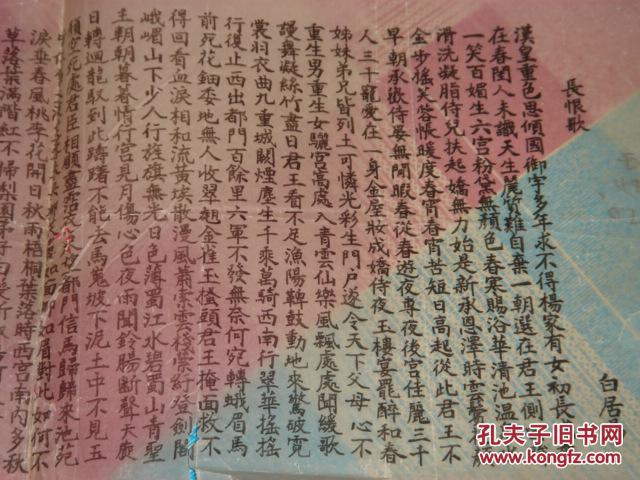 長恨歌
白居
漢皇重色思傾國御宇多年求不得楊家有女初長
在春閨人未識天生麗質難自棄一朝選在君王側
一笑百媚生六宮粉黛無顏色春寒賜浴華清池溫
滑洗凝脂侍兒扶起嬌無力始是新承恩澤時雲鬢
金步搖芙蓉帳暖度春宵春宵苦短日高起從此君王不
早朝承歡侍宴無閒暇春從春遊夜專夜後宮佳麗三千
人三千寵愛在一身金屋妝成嬌侍夜玉樓宴罷醉和春
姊妹弟兄皆列土可憐光彩生門戶遂令天下父母心不
重生男重生女驪宮高處入青雲仙樂風飄處處聞緩歌
謾舞凝絲竹盡日君王看不足漁陽鞞鼓動地來驚破霓
裳羽衣曲九重城闕煙塵生千乘萬騎西南行翠華搖搖
行復止西出都門百餘里六軍不發無奈何宛轉蛾眉馬
前死花鈿委地無人收翠翹金雀玉搔頭君王掩面救不
得回看血淚相和流黃埃散漫風蕭索雲棧縈紆登劍閣
峨嵋山下少人行旌旗無光日色薄蜀江水碧蜀山青聖
主朝朝暮暮情行宮見月傷心色夜雨聞鈴腸斷聲天旋
日轉迴龍馭到此躊躇不能去馬嵬坡下泥土中不見玉
顏空死處君臣相顧盡沾衣東望都門信馬歸歸來池苑
如面柳如眉對此如何不
淚垂春風桃李花開日秋雨梧桐葉落時西宮南內多秋
草落葉滿階紅不掃梨園弟子白髮新
孔夫子旧书网